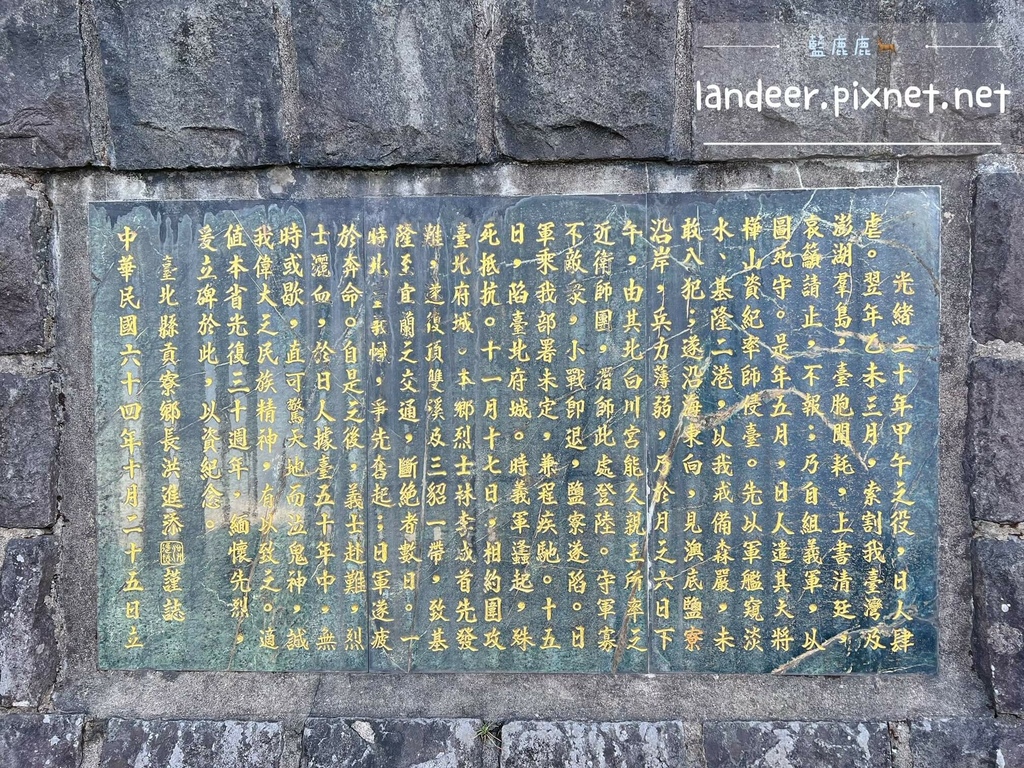 藍鹿鹿
landeer.pixnet.net
光緒二十年甲午之役，日人肆
虐。翌年乙未三月，索割我臺灣及
澎湖羣島，臺胞聞耗，上書清廷，
哀籲請止，不報；乃自組義軍，以
圖死守。是年五月，日人遣其大將
樺山資紀率師侵臺。先以軍艦窺淡
水、基隆二港，以我戒備森嚴，未
敢入犯；遂沿海東向，見澳底鹽寮
沿岸，兵力薄弱，乃於月之六日下
午，由其北白川宮能久親王所率之
近衛師團，潛師此處登陸。守軍寡
不敵衆，小戰即退，鹽寮遂陷。日
軍乘我部署未定，兼程疾馳。十五
日，陷臺北府城。時義軍蠭起，殊
死抵抗。十一月十七日，相約圍攻
臺北府城。本鄉烈士林李成首先發
難，遂復頂雙溪及三貂一帶，致基
隆至宜蘭之交通，斷絕者數日。一
時北，爭先奮起；日軍遂疲
於奔命。自是之後，義士赴難，烈
士灑血，於日人據臺五十年中，無
時或歇，直可驚天地而泣鬼神，誠
我偉大之民族精神，有以致之。適
值本省光復三十週年，緬懷先烈，
爰立碑於此，以資紀念。
臺北縣貢寮鄉長洪進添謹誌
中華民國六十四年十月二十五日立